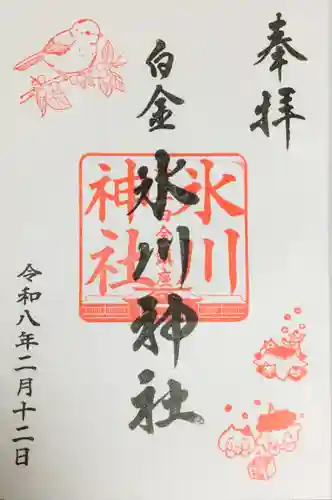 奉拝
白金
氷川神社
氷川
神社
令和八年二月十二日